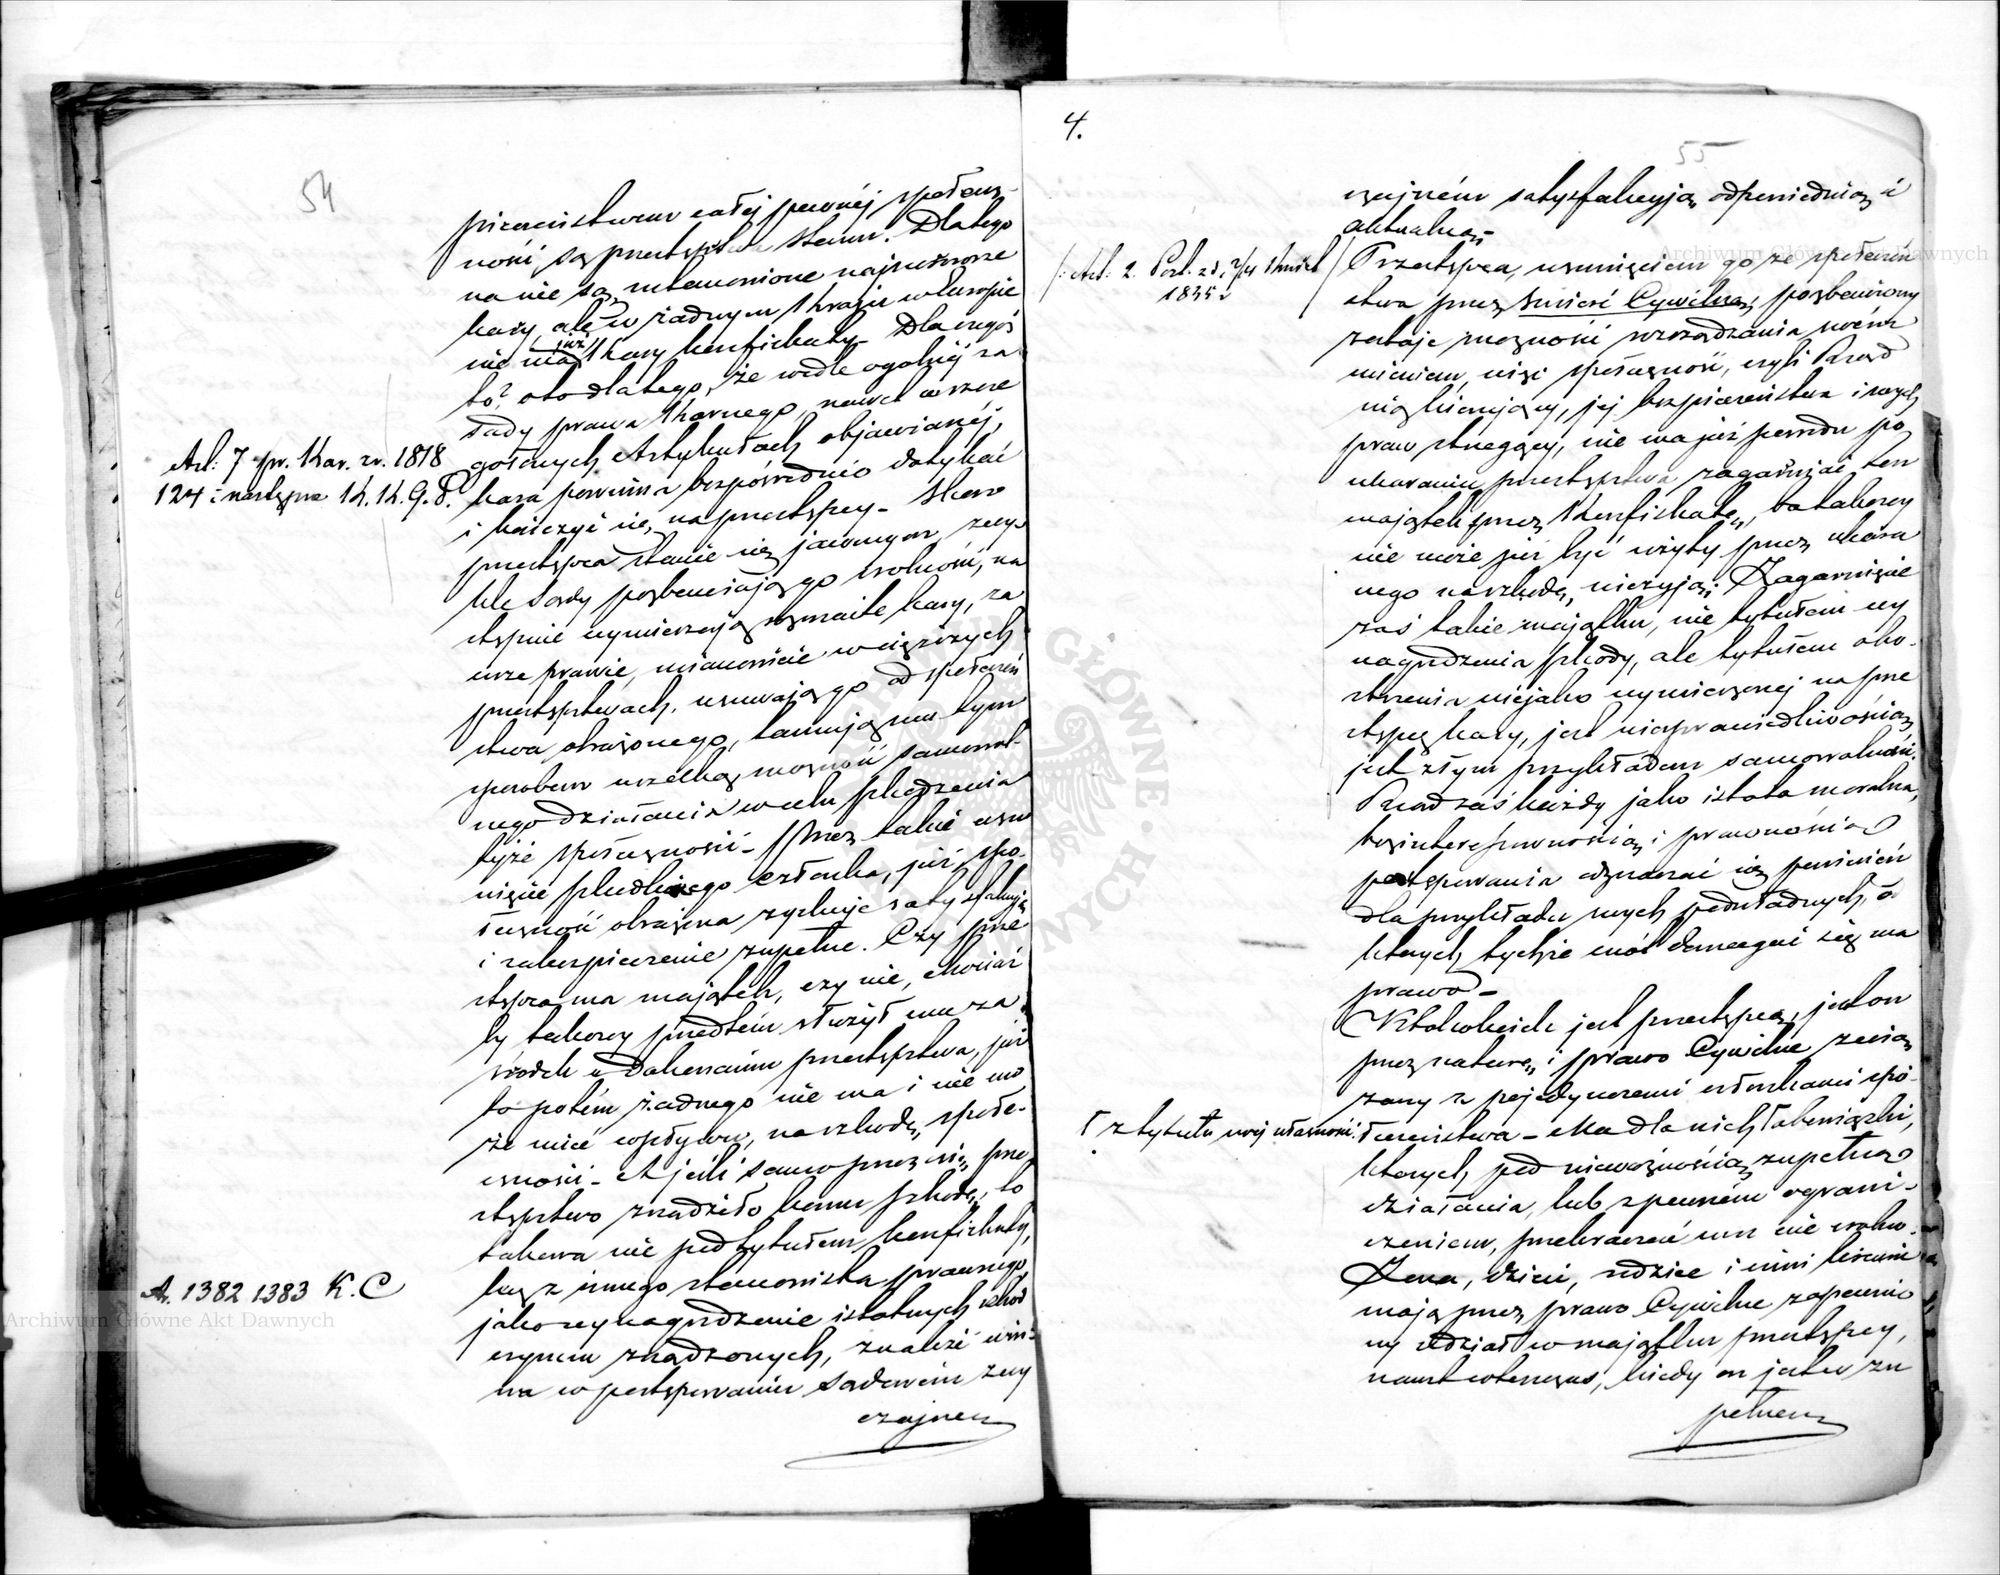 54
pieczeństwem całej pewnéj społecz-
ności, są przestępstwa stanu. Dlatego
na nie są ustanowione najsurowsze
kary, ale w żadnym kraju w Europie
nie ma już kary konfiskaty. Dla czegóż
to? oto dlatego, że wedle ogolnéj za
sady prawa karnego, nawet w szcze
gołowych Artykułach objawianéj,
kara powinna bezpośrednio dotykać
i kończyć się na przestępcy. Skoro
przestępca stanie się jawnym, zwy-
kle Sądy pozbawiają go wolności, na
stępnie wymierzają rozmaite kary, za
wsze prawie, mianowicie w cięższych
przestępstwach, usuwają go od społeczeń
stwa obrażonego, tamują mu tym
sposobem wszelką możność samowol-
nego działania w celu szkodzenia
tyjże społeczności. Przez takie usu
nięcie szkodliwego członka, już spo-
łeczność obrażona zyskuje satysfakcyję
i zabezpieczenie zupełne. Czy prze
stępca ma majątek, czy nie, chociaż
by takowy przedtém służył mu za
środek w dokonaniu przestępstwa, już
to potém żadnego nie ma i nie mo
że mieć wpływu, na szkodę społe-
czności. A jeśli samo przez się prze
stępstwo zrządziło komu szkodę, to
takowa nie pod tytułem konfiskaty,
lecz z innego stanowiska prawnego,
jako wynagrodzenie istotnych szkód
czynem zrządzonych, znaleźć win-
na w postępowaniu sądowém zwy
czajnem
Art: 7 pr. Kar. zr. 1818
124 i następne K. K. G. P.
Ar. 1382 1383 K. C
4.
55
czajném satysfakcyją odpowiednią i
aktualną.
Przestępca, usunięciem go ze społeczeń
stwa przez śmierć Cywilną, pozbawiony
zostaje możności rozrządzania swém
mieniem, więc społeczność, czyli Rząd
nią kierujący, jej bezpieczeństwa i swych
praw strzegący, nie ma już powodu po
ukaraniu przestępstwa zagarniać ten
majątek przez Konfiskatę, bo takowy
nie może już być użyty przez ukara
nego na szkodę niczyją. Zagarnięcie
zaś takie majątku, nie tytułem wy
nagrodzenia szkody, ale tytułem obo-
strzenia niejako wymierzonej na prze
stępcę kary, jest niesprawiedliwością,
jest złym przykładem samowolności.
Rząd zaś każdy jako istota moralna,
bezinteresownością i prawością
postępowania odznaczać się powinien
dla przykładu swych poddanych, o
których tychże cnót domagać się ma
prawo.
Ktokolwiek jest przestępcą, jest on
przez naturę i prawo Cywilne zwią
zany z pojedynczemi członkami spo-
łeczeństwa. Ma dla nich obowiązki,
których pod nieważnością zupełną
działania, lub z pewném ograni-
czeniem, przekraczać mu nie wolno.
Żona, dzieci, rodzice i inni krewni
mają przez prawo Cywilne zapewnio
ny udział w majątku przestępcy,
nawet wtenczas, kiedy on jest w zu
pełném
Art: 2. Post. z d. 2/14 Kwiet
1835 r
z tytułu swéj własności.
Archiwum Główne Akt Dawnych
Archiwum Główne Akt Dawnych